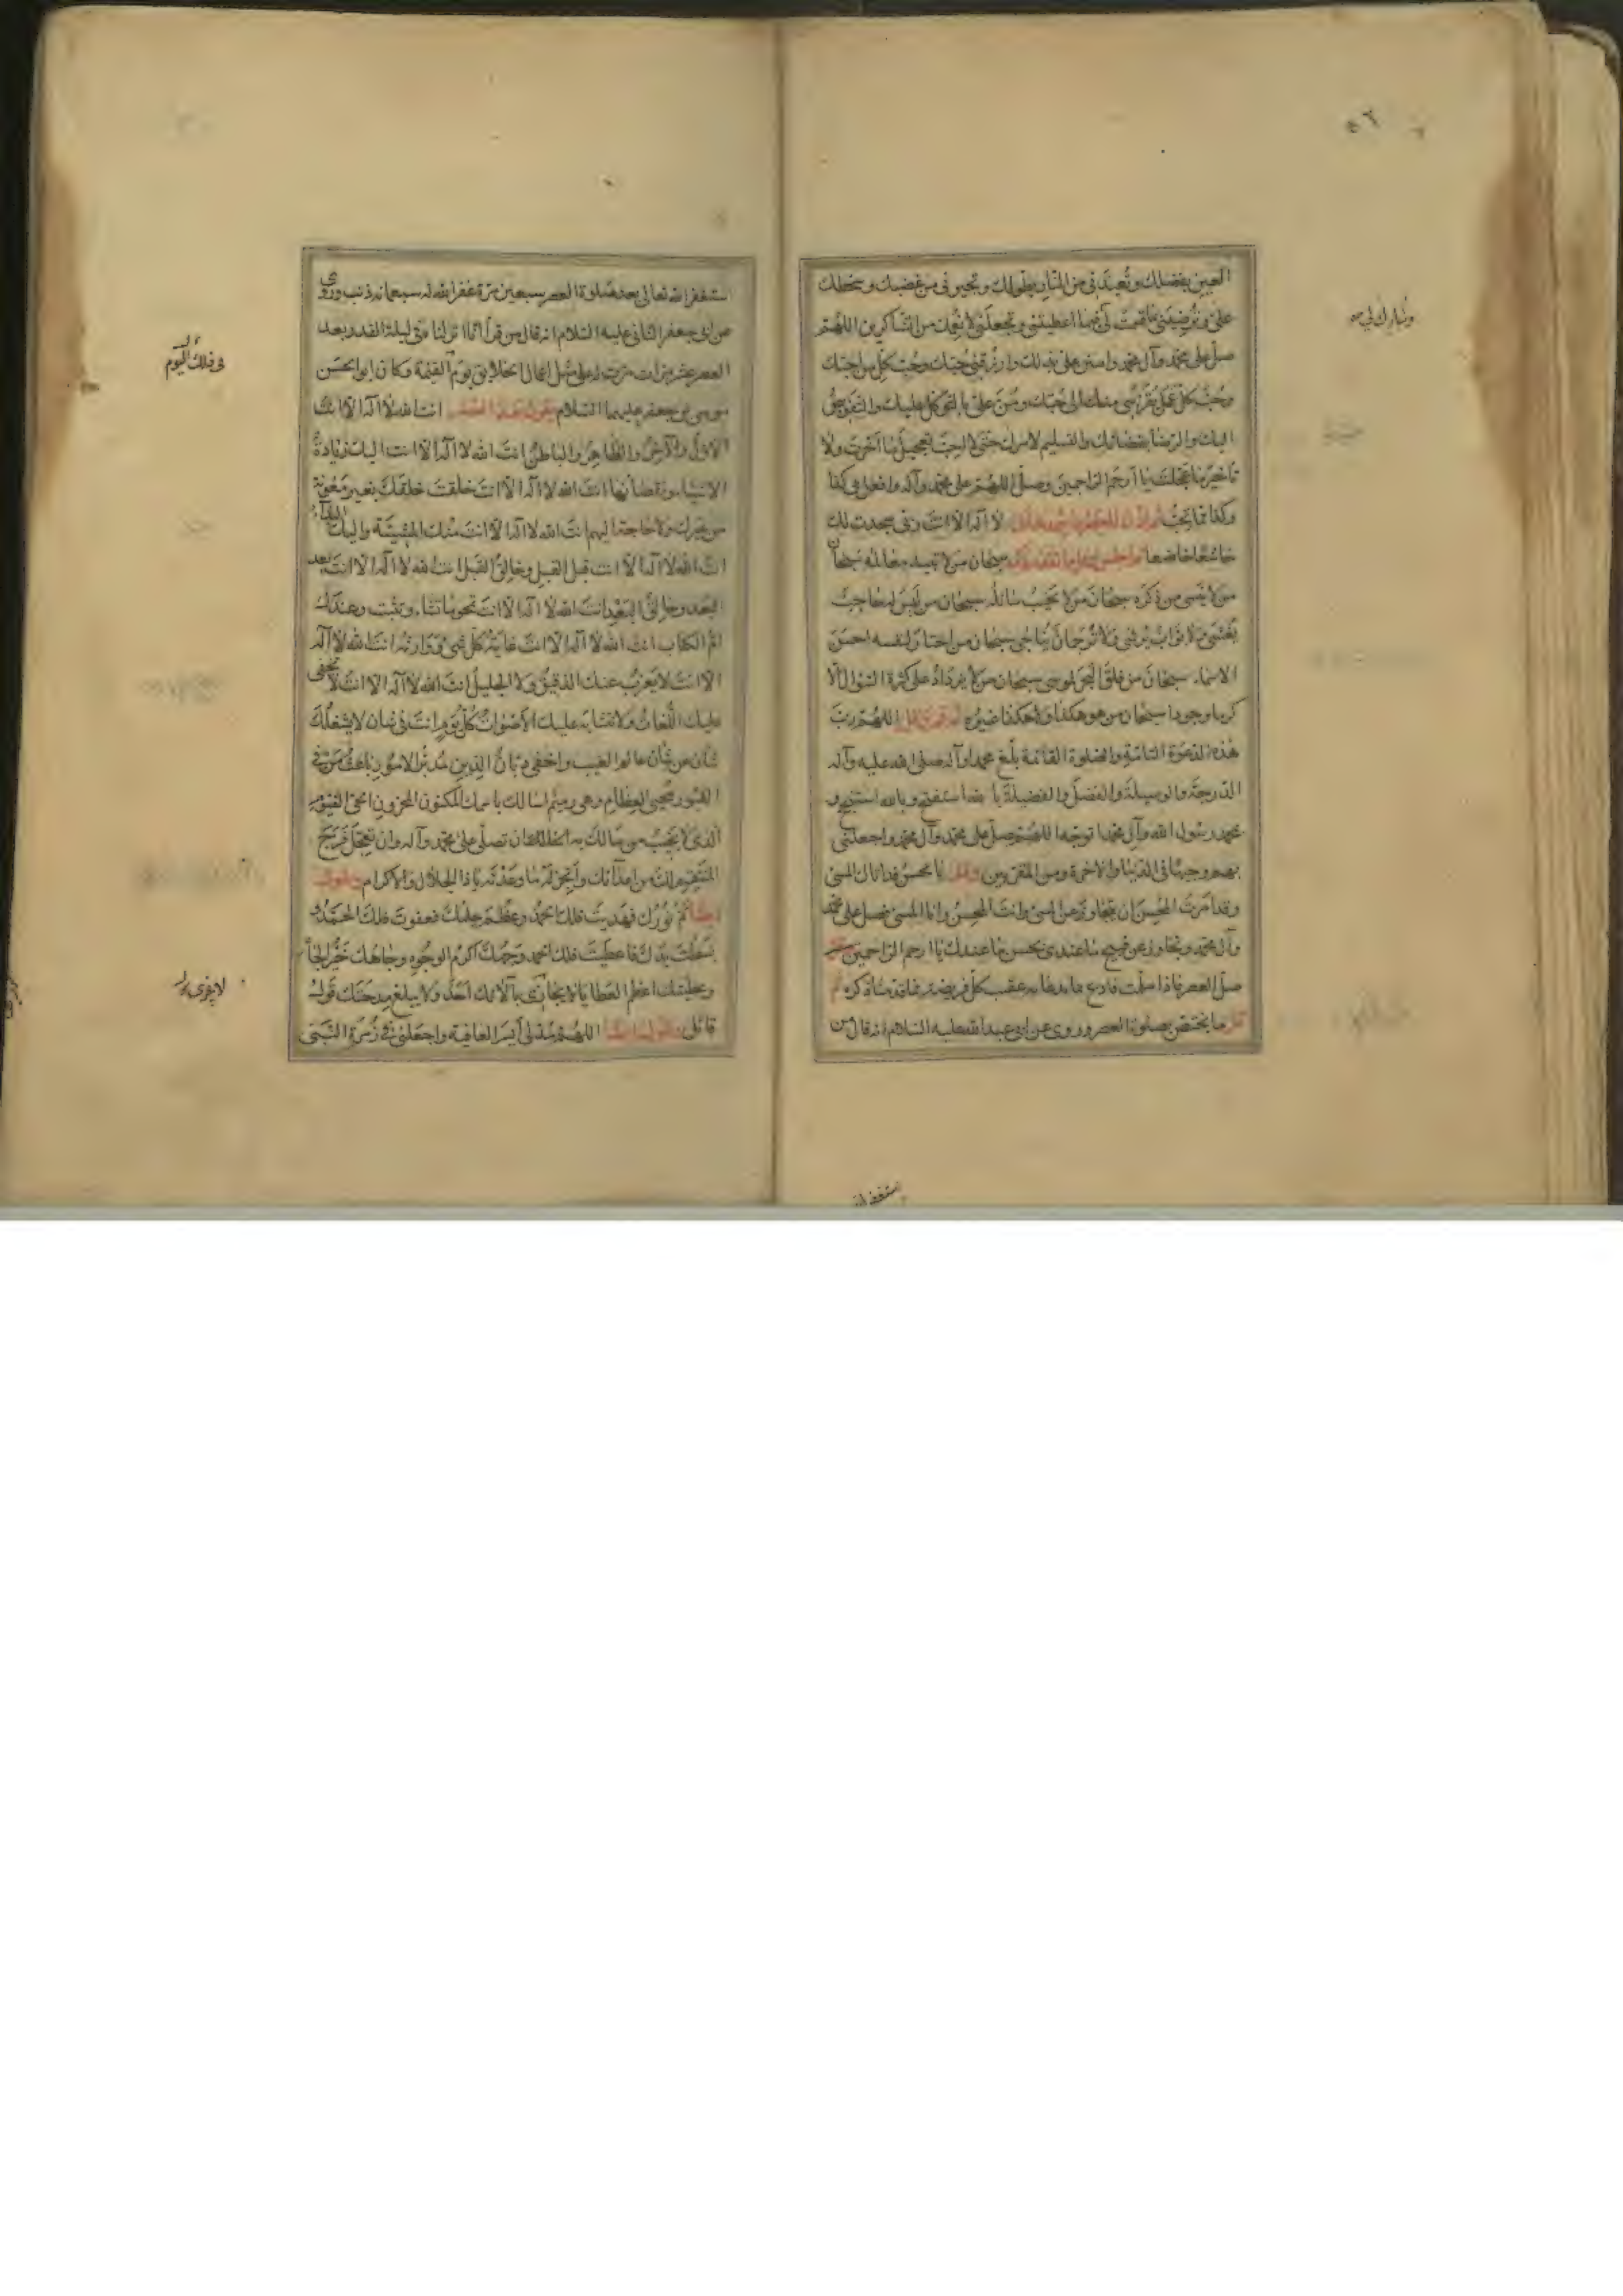 ٥٦
العين بفضلك وتعيذني من النار بطولك وتجيرني من غضبك وسخطك
علي وترضيني بما قسمت لي فيما اعطيتني وتجعلني لانعمك من الشاكرين اللهم
وتبارك لي
صل على محمد وآل محمد وامنن علي بذلك وارزقني حبك وحب كل من احبك
وحب كل عمل يقربني منك الى حبك ومن علي بالتوكل عليك والتفويض
اليك والرضا بقضائك والتسليم لامرك حتى لا احب تعجيل ما اخرت ولا
تأخير ما عجلت يا ارحم الراحمين وصل اللهم على محمد وآله وافعل بي كذا
وكذا مما تحب لا اله الا انت ربي سجدت لك
خاشعا خاضعا سبحان من لا تبيد معالمه سبحان
من لا ينسى من ذكره سبحان من لا يخيب سائله سبحان من ليس له حاجب
يغشى ولا بواب يرشى ولا ترجمان يناجى سبحان من اختار لنفسه احسن
الاسماء سبحان من فلق البحر لموسى سبحان من لا يزداد على كثرة السؤال الا
كرما وجودا سبحان من هو هكذا ولا هكذا غيره اللهم رب
هذه الدعوة التامة والصلوة القائمة بلغ محمدا وآله صلى الله عليه وآله
الدرجة والوسيلة والفضل والفضيلة بالله استفتح وبالله استنجح و
بمحمد رسول الله وآل محمد اتوجه اللهم صل على محمد وآل محمد واجعلني
بهم وجيها في الدنيا والاخرة ومن المقربين وقل يا محسن قد اتاك المسئ
وقد امرت المحسن ان يتجاوز عن المسئ وانت المحسن وانا المسئ فصل على محمد
وآل محمد وتجاوز عن قبيح ما عندي بحسن ما عندك يا ارحم الراحمين
صل العصر فاذا سلمت فادع بما يدعا به عقيب كل فريضة مما قدمنا ذكره ثم
قل ما يختص بصلوة العصر وروى عن ابي عبد الله عليه السلام انه قال من
استغفر الله
استغفر الله تعالى بعد صلوة العصر سبعين مرة غفر الله له سبعمائة ذنب وروى
عن ابي جعفر الثاني عليه السلام انه قال من قرأ انا انزلناه في ليلة القدر بعد
العصر عشر مرات مرت له على مثل اعمال الخلايق يوم القيمة وكان ابو الحسن
في ذلك اليوم
موسى بن جعفر عليهما السلام يقول بعد العصر انت الله لا اله الا انت
الاول والآخر والظاهر والباطن انت الله لا اله الا انت اليك زيادة
الاشياء ونقصانها انت الله لا اله الا انت خلقت خلقك بغير معونة
من غيرك ولا حاجة اليهم انت الله لا اله الا انت منك المشية واليك البداء
انت الله لا اله الا انت قبل القبل وخالق القبل انت الله لا اله الا انت بعد
البعد وخالق البعد انت الله لا اله الا انت تمحو ما تشاء وتثبت وعندك
ام الكتاب انت الله لا اله الا انت غاية كل شئ ووارثه انت الله لا اله
الا انت لا يعزب عنك الدقيق ولا الجليل انت الله لا اله الا انت لا تخفى
عليك اللغات ولا تتشابه عليك الاصوات كل يوم انت في شان لا يشغلك
شان عن شان عالم الغيب واخفى ديان الدين مدبر الامور باعث من في
القبور محيي العظام وهي رميم اسالك باسمك المكنون المخزون الحي القيوم
الذي لا يخيب من سالك به اسالك ان تصلي على محمد وآله وان تعجل فرج
المنتقم لك من اعدائك وانجز له ما وعدته يا ذا الجلال والاكرام وتقول
ايضا تم نورك فهديت فلك الحمد وعظم حلمك فعفوت فلك الحمد و
بسطت يدك فاعطيت فلك الحمد وجهك اكرم الوجوه وجاهك خير الجاه
وعطيتك اعظم العطايا لا يجازى بآلائك احد ولا يبلغ مدحتك قول
لا يجزى
قائل وتقول ايضا اللهم مد لي ايسر العافية واجعلني في زمرة النبي